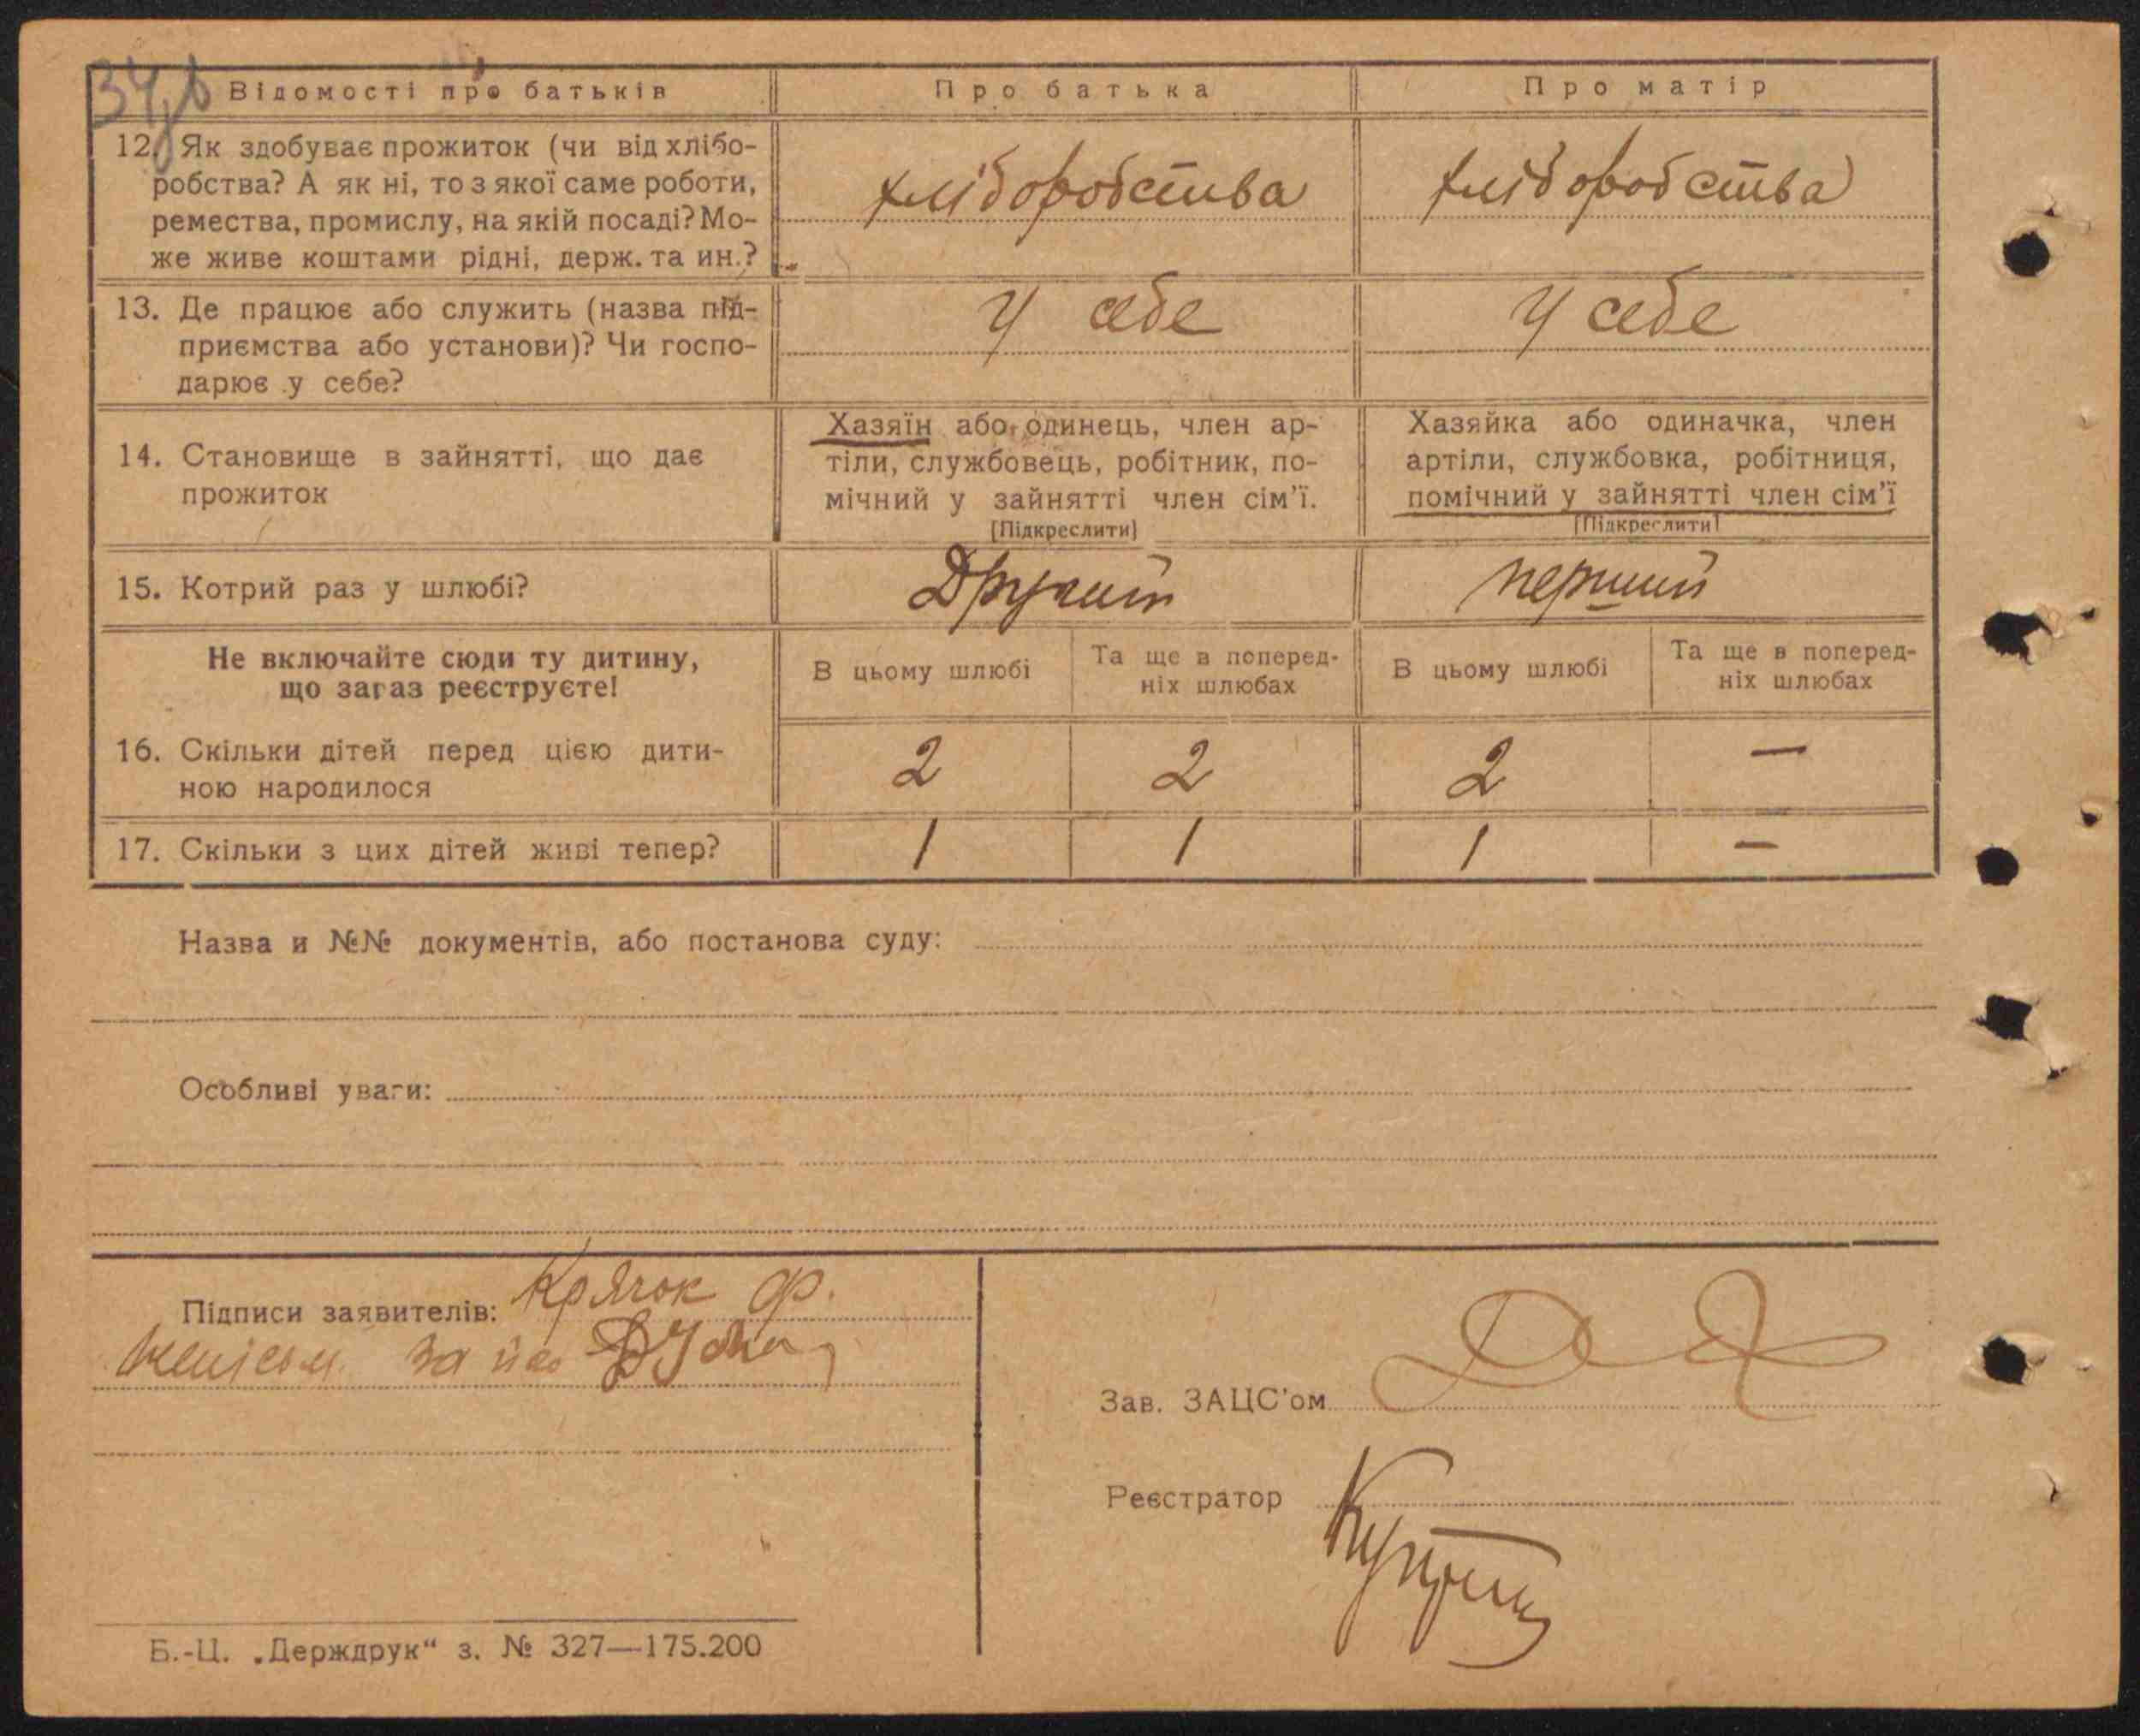 Відомості про батьків
Про батька
Про матір
12. Як здобуває прожиток (чи від хлібо-
робства? А як ні, то з якої саме роботи,
ремества, промислу, на якій посаді? Мо-
же живе коштами рідні, держ. та ин.?
хліборобства
хліборобства
13. Де працює або служить (назва під-
приємства або установи)? Чи госпо-
дарює у себе?
У себе
У себе
14. Становище в зайнятті, що дає
прожиток
Хазяїн або одинець, член ар-
тіли, службовець, робітник, по-
мічний у зайнятті член сім'ї.
[Підкреслити]
Хазяйка або одиначка, член
артіли, службовка, робітниця,
помічний у зайнятті член сім'ї
[Підкреслити]
15. Котрий раз у шлюбі?
Другий
перший
Не включайте сюди ту дитину,
що зараз реєструєте!
В цьому шлюбі
Та ще в поперед-
ніх шлюбах
В цьому шлюбі
Та ще в поперед-
ніх шлюбах
16. Скільки дітей перед цією дити-
ною народилося
2
2
2
—
17. Скільки з цих дітей живі тепер?
1
1
1
—
Назва и №№ документів, або постанова суду:
Особливі уваги:
Підписи заявителів: Крячок Ф.
за
Зав. ЗАЦС'ом
Реєстратор
Б.-Ц. „Держдрук“ з. № 327—175.200